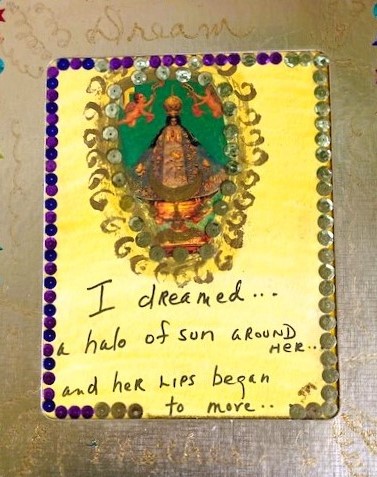 Dream
I dreamed...
a halo of sun AROUND
HER..
and heR LIPS began
to move..